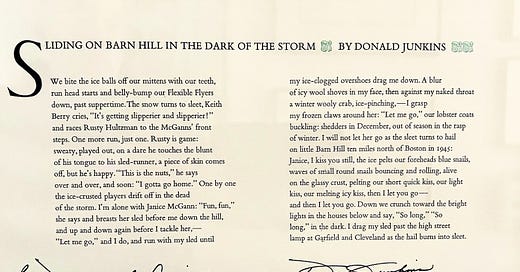 SLIDING ON BARN HILL IN THE DARK OF THE STORM BY DONALD JUNKINS
We bite the ice balls off our mittens with our teeth,
run head starts and belly-bump our Flexible Flyers
down, past suppertime. The snow turns to sleet, Keith
Berry cries, "It's getting slipperier and slipperier!"
and races Rusty Hultzman to the McGanns' front
steps. One more run, just one. Rusty is game:
sweaty, played out, on a dare he touches the blunt
of his tongue to his sled-runner, a piece of skin comes
off, but he's happy. "This is the nuts," he says
over and over, and soon: "I gotta go home." One by one
the ice-crusted players drift off in the dead
of the storm. I'm alone with Janice McGann: "Fun, fun,"
she says and breathes her sled before me down the hill,
and up and down again before I tackle her,—
"Let me go," and I do, and run with my sled until
my ice-clogged overshoes drag me down. A blur
of icy wool shoves in my face, then against my naked throat
a winter wooly crab, ice-pinching,—I grasp
my frozen claws around her: "Let me go," our lobster coats
buckling: shedders in December, out of season in the rasp
of winter. I will not let her go as the sleet turns to hail
on little Barn Hill ten miles north of Boston in 1945:
Janice, I kiss you still, the ice pelts our foreheads blue snails,
waves of small round snails bouncing and rolling, alive
on the glassy crust, pelting our short quick kiss, our light
kiss, our melting icy kiss, then I let you go—
and then I let you go. Down we crunch toward the bright
lights in the houses below and say, "So long," "So
long," in the dark. I drag my sled past the high street
lamp at Garfield and Cleveland as the hail burns into sleet.